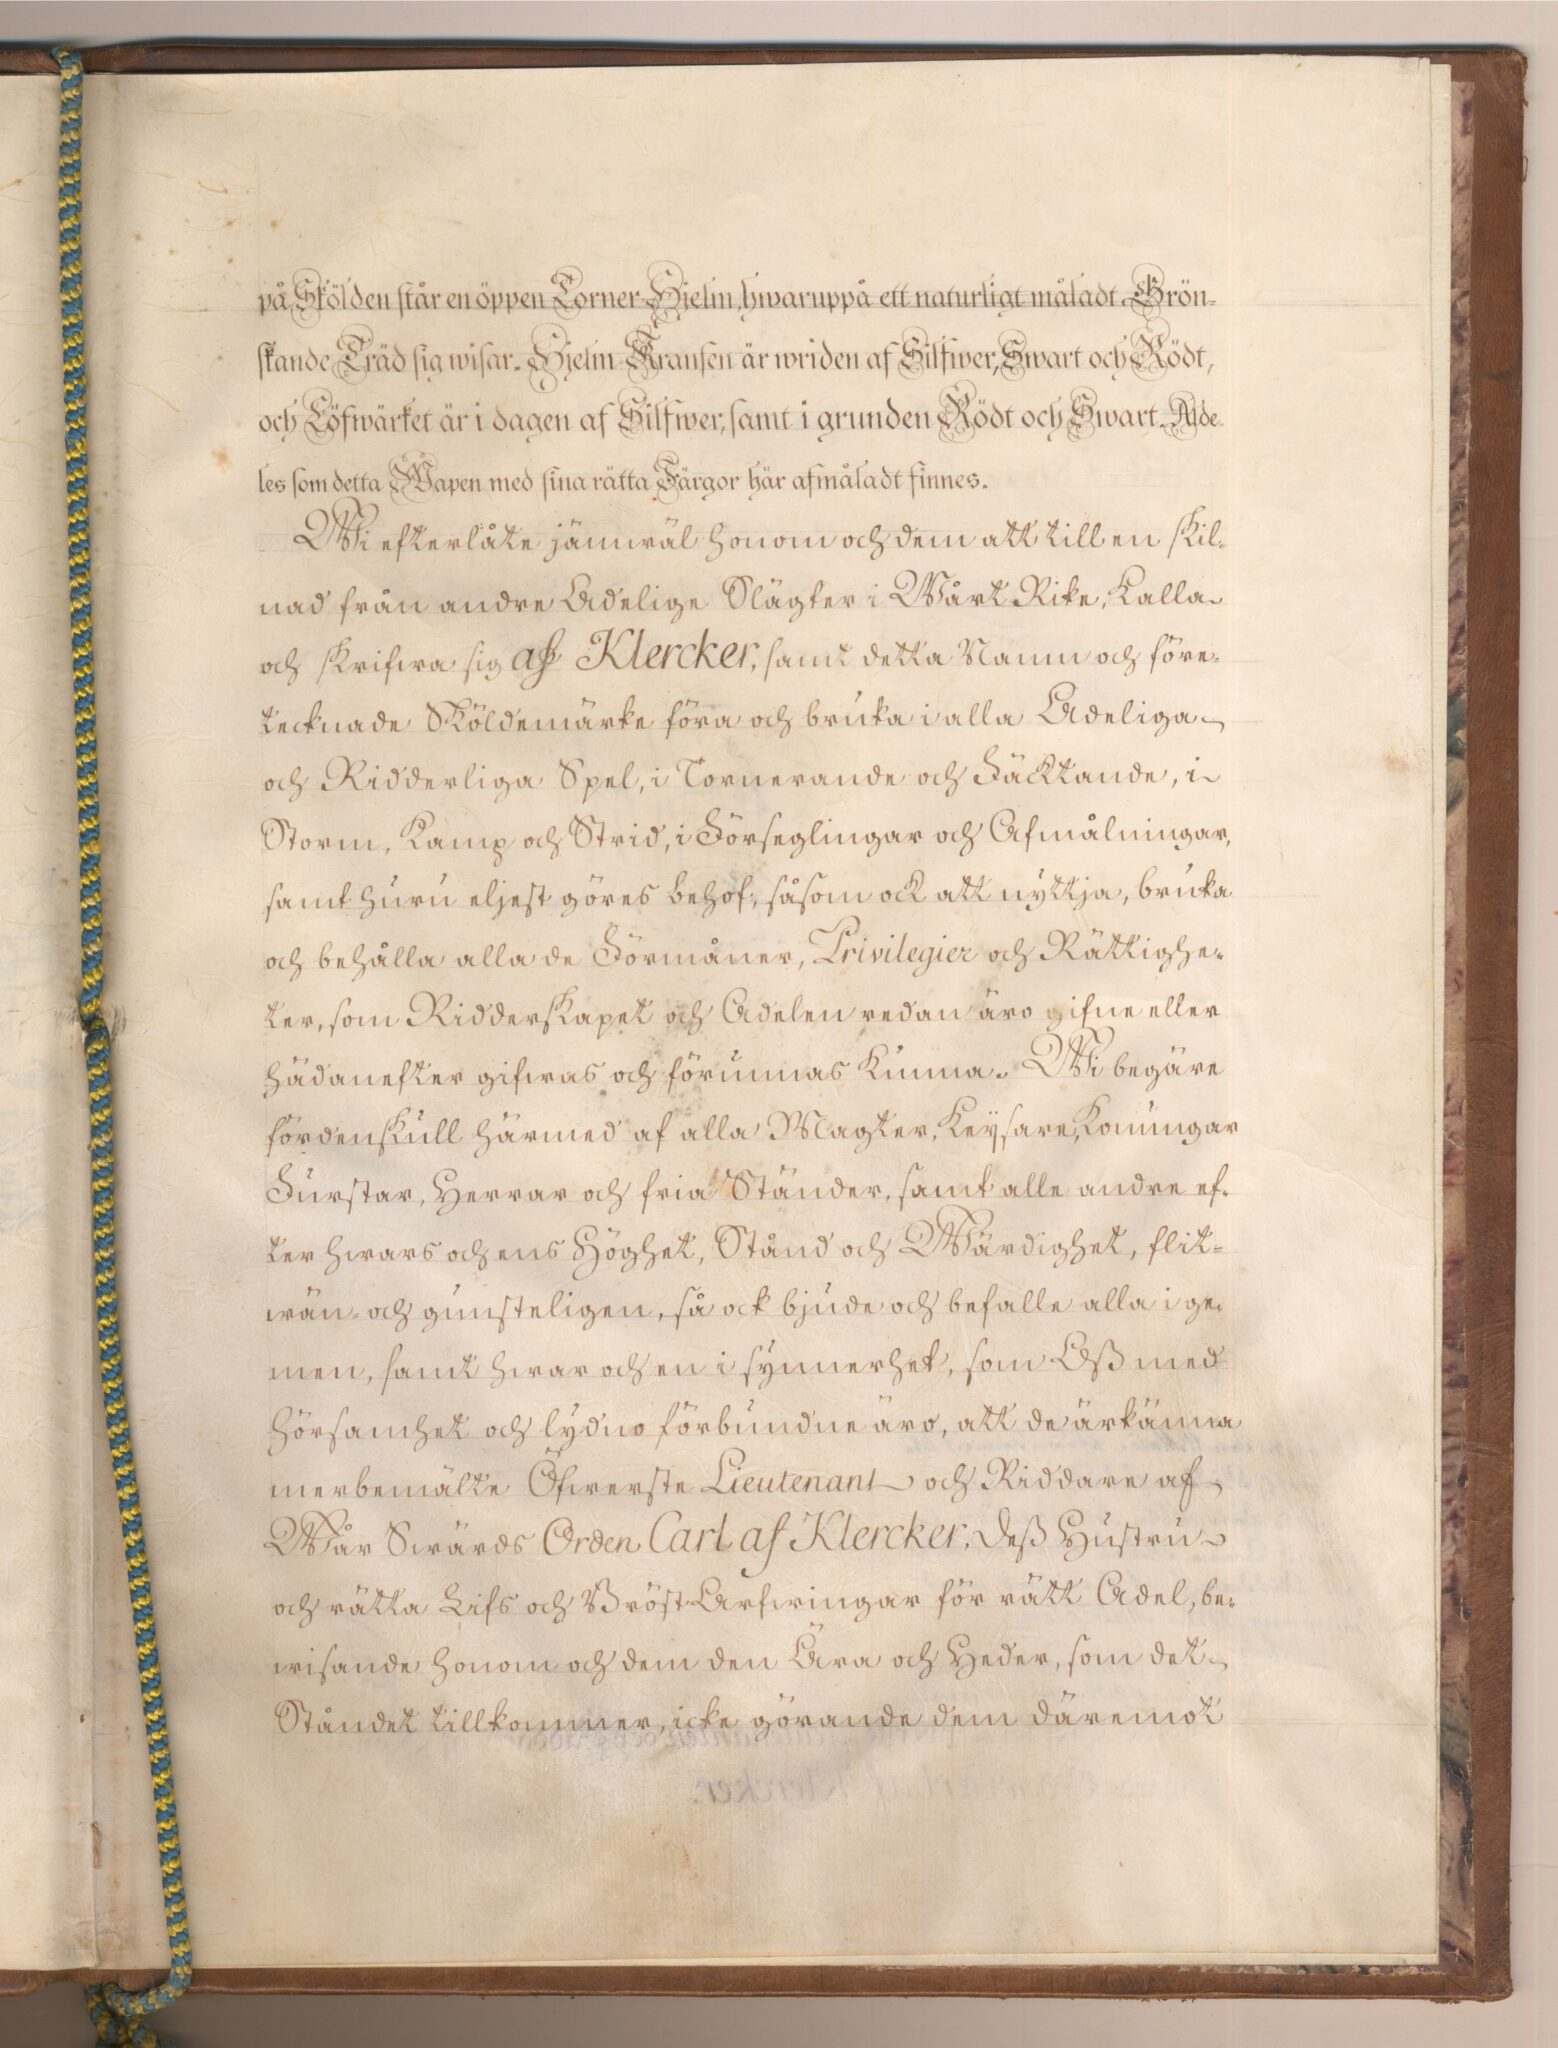 på Skölden står en öppen Torner-Hjelm, hwaruppå ett naturligt måladt Grön-
skande Träd sig wisar. Hjelm-Kransen är wriden af Silfwer, Swart och Rödt,
och Löfwärket är i dagen af Silfwer, samt i grunden Rödt och Swart. Alde-
les som detta Wapen med sina rätta Färgor här afmåladt finnes.
Wi efterlåte jämwäl honom och dem att till en skil-
nad från andre Adelige Slägter i Wårt Rike, kalla
och skrifwa sig af Klercker, samt detta Namn och före-
tecknade Sköldemärke föra och bruka i alla Adeliga
och Ridderliga Spel, i Tornerande och Fäcktande, i
Storm, Kamp och Strid, i Förseglingar och Afmålningar,
samt huru eljest göres behof, såsom ock att nyttja, bruka
och behålla alla de Förmåner, Privilegier och Rättighe-
ter, som Ridderskapet och Adelen redan äro gifne eller
hädanefter gifwas och förunnas kunna. Wi begäre
fördenskull härmed af alla Magter, Keysare, Konungar
Furstar, Herrar och fria Stånder, samt alle andre ef-
ter hwars och ens Höghet, Stånd och Wärdighet, flit-
wän- och gunsteligen, så ock bjude och befalle alla i ge-
men, samt hwar och en i synnerhet, som Oß med
hörsamhet och lydno förbundne äro, att de ärkänna
merbemälte Öfwerste Lieutenant och Riddare af
Wår Swärds Orden Carl af Klercker, deß Hustru
och rätta Lifs och Bröst Arfwingar för rätt Adel, be-
wisande honom och dem den Ära och Heder, som det
Ståndet tillkommer, icke görande dem däremot